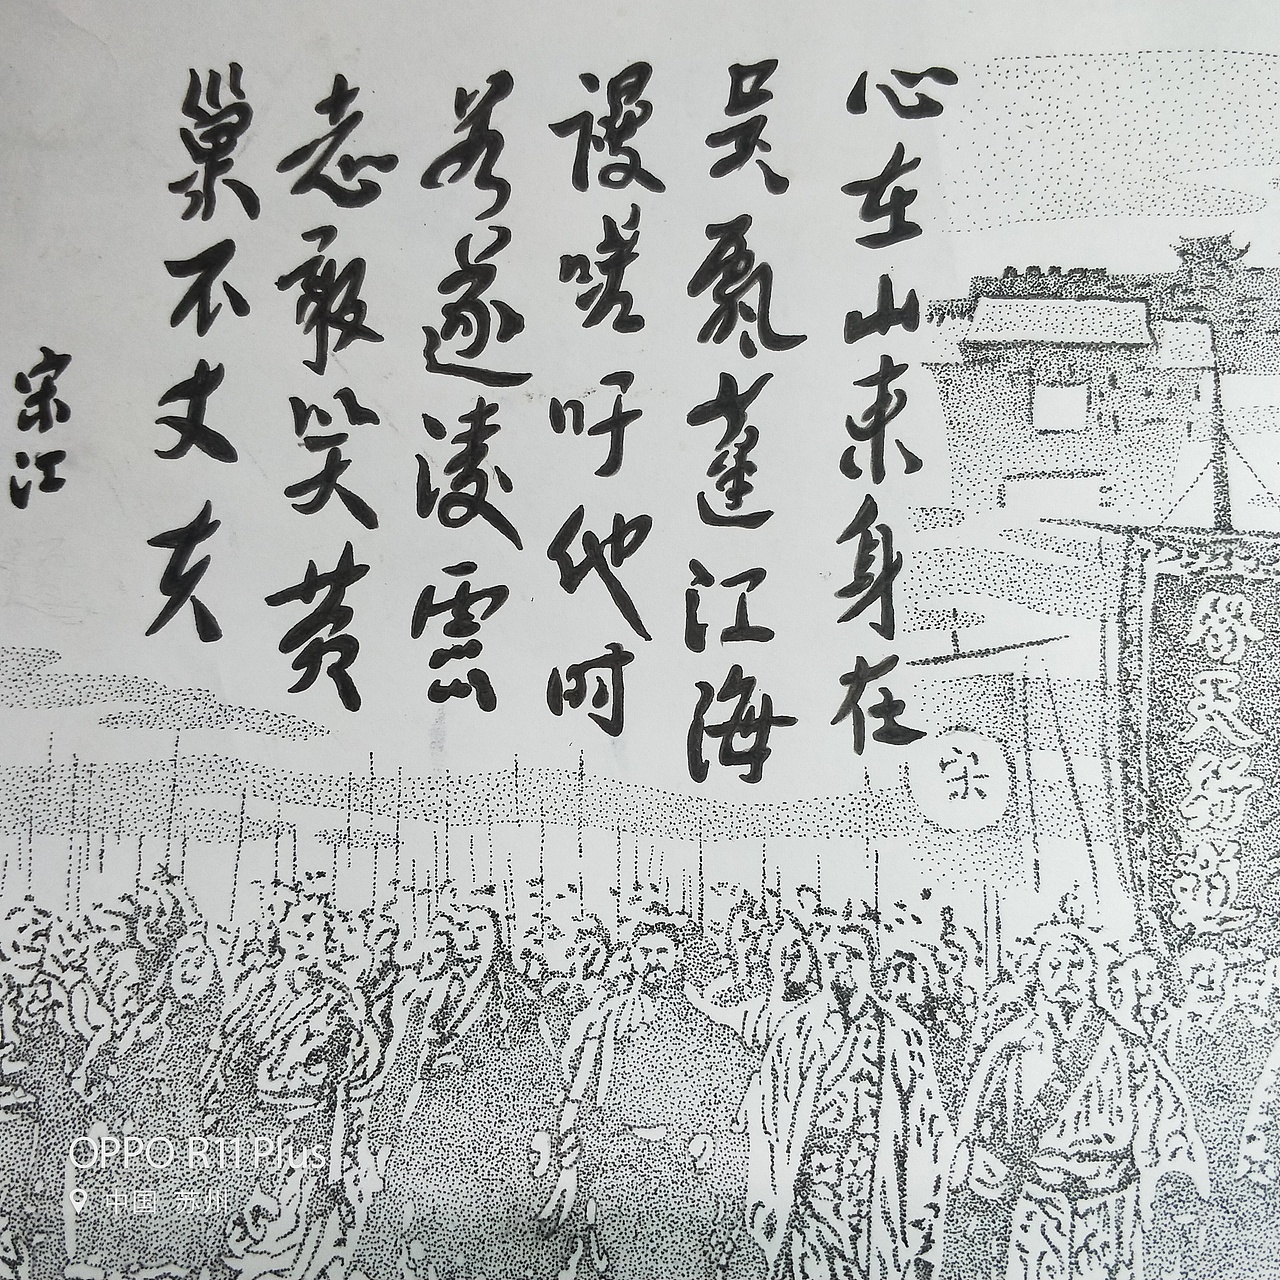 心在山東身在
吴飘蓬江海
谩嗟吁他时
若遂凌雲
志敢笑黄
巢不丈夫
宋江
宋
替天行道
OPPO R11 Plus
中国 苏州